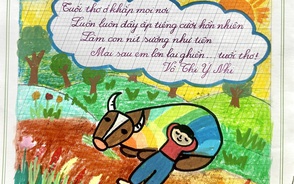 Tuổi thơ ở khắp mọi nơi
Luôn luôn đầy ắp tiếng cười hồn nhiên
Làm con nít sướng như tiên
Mai sau em lớn lại ghiền... tuổi thơ!
Võ Thị Ý Nhi